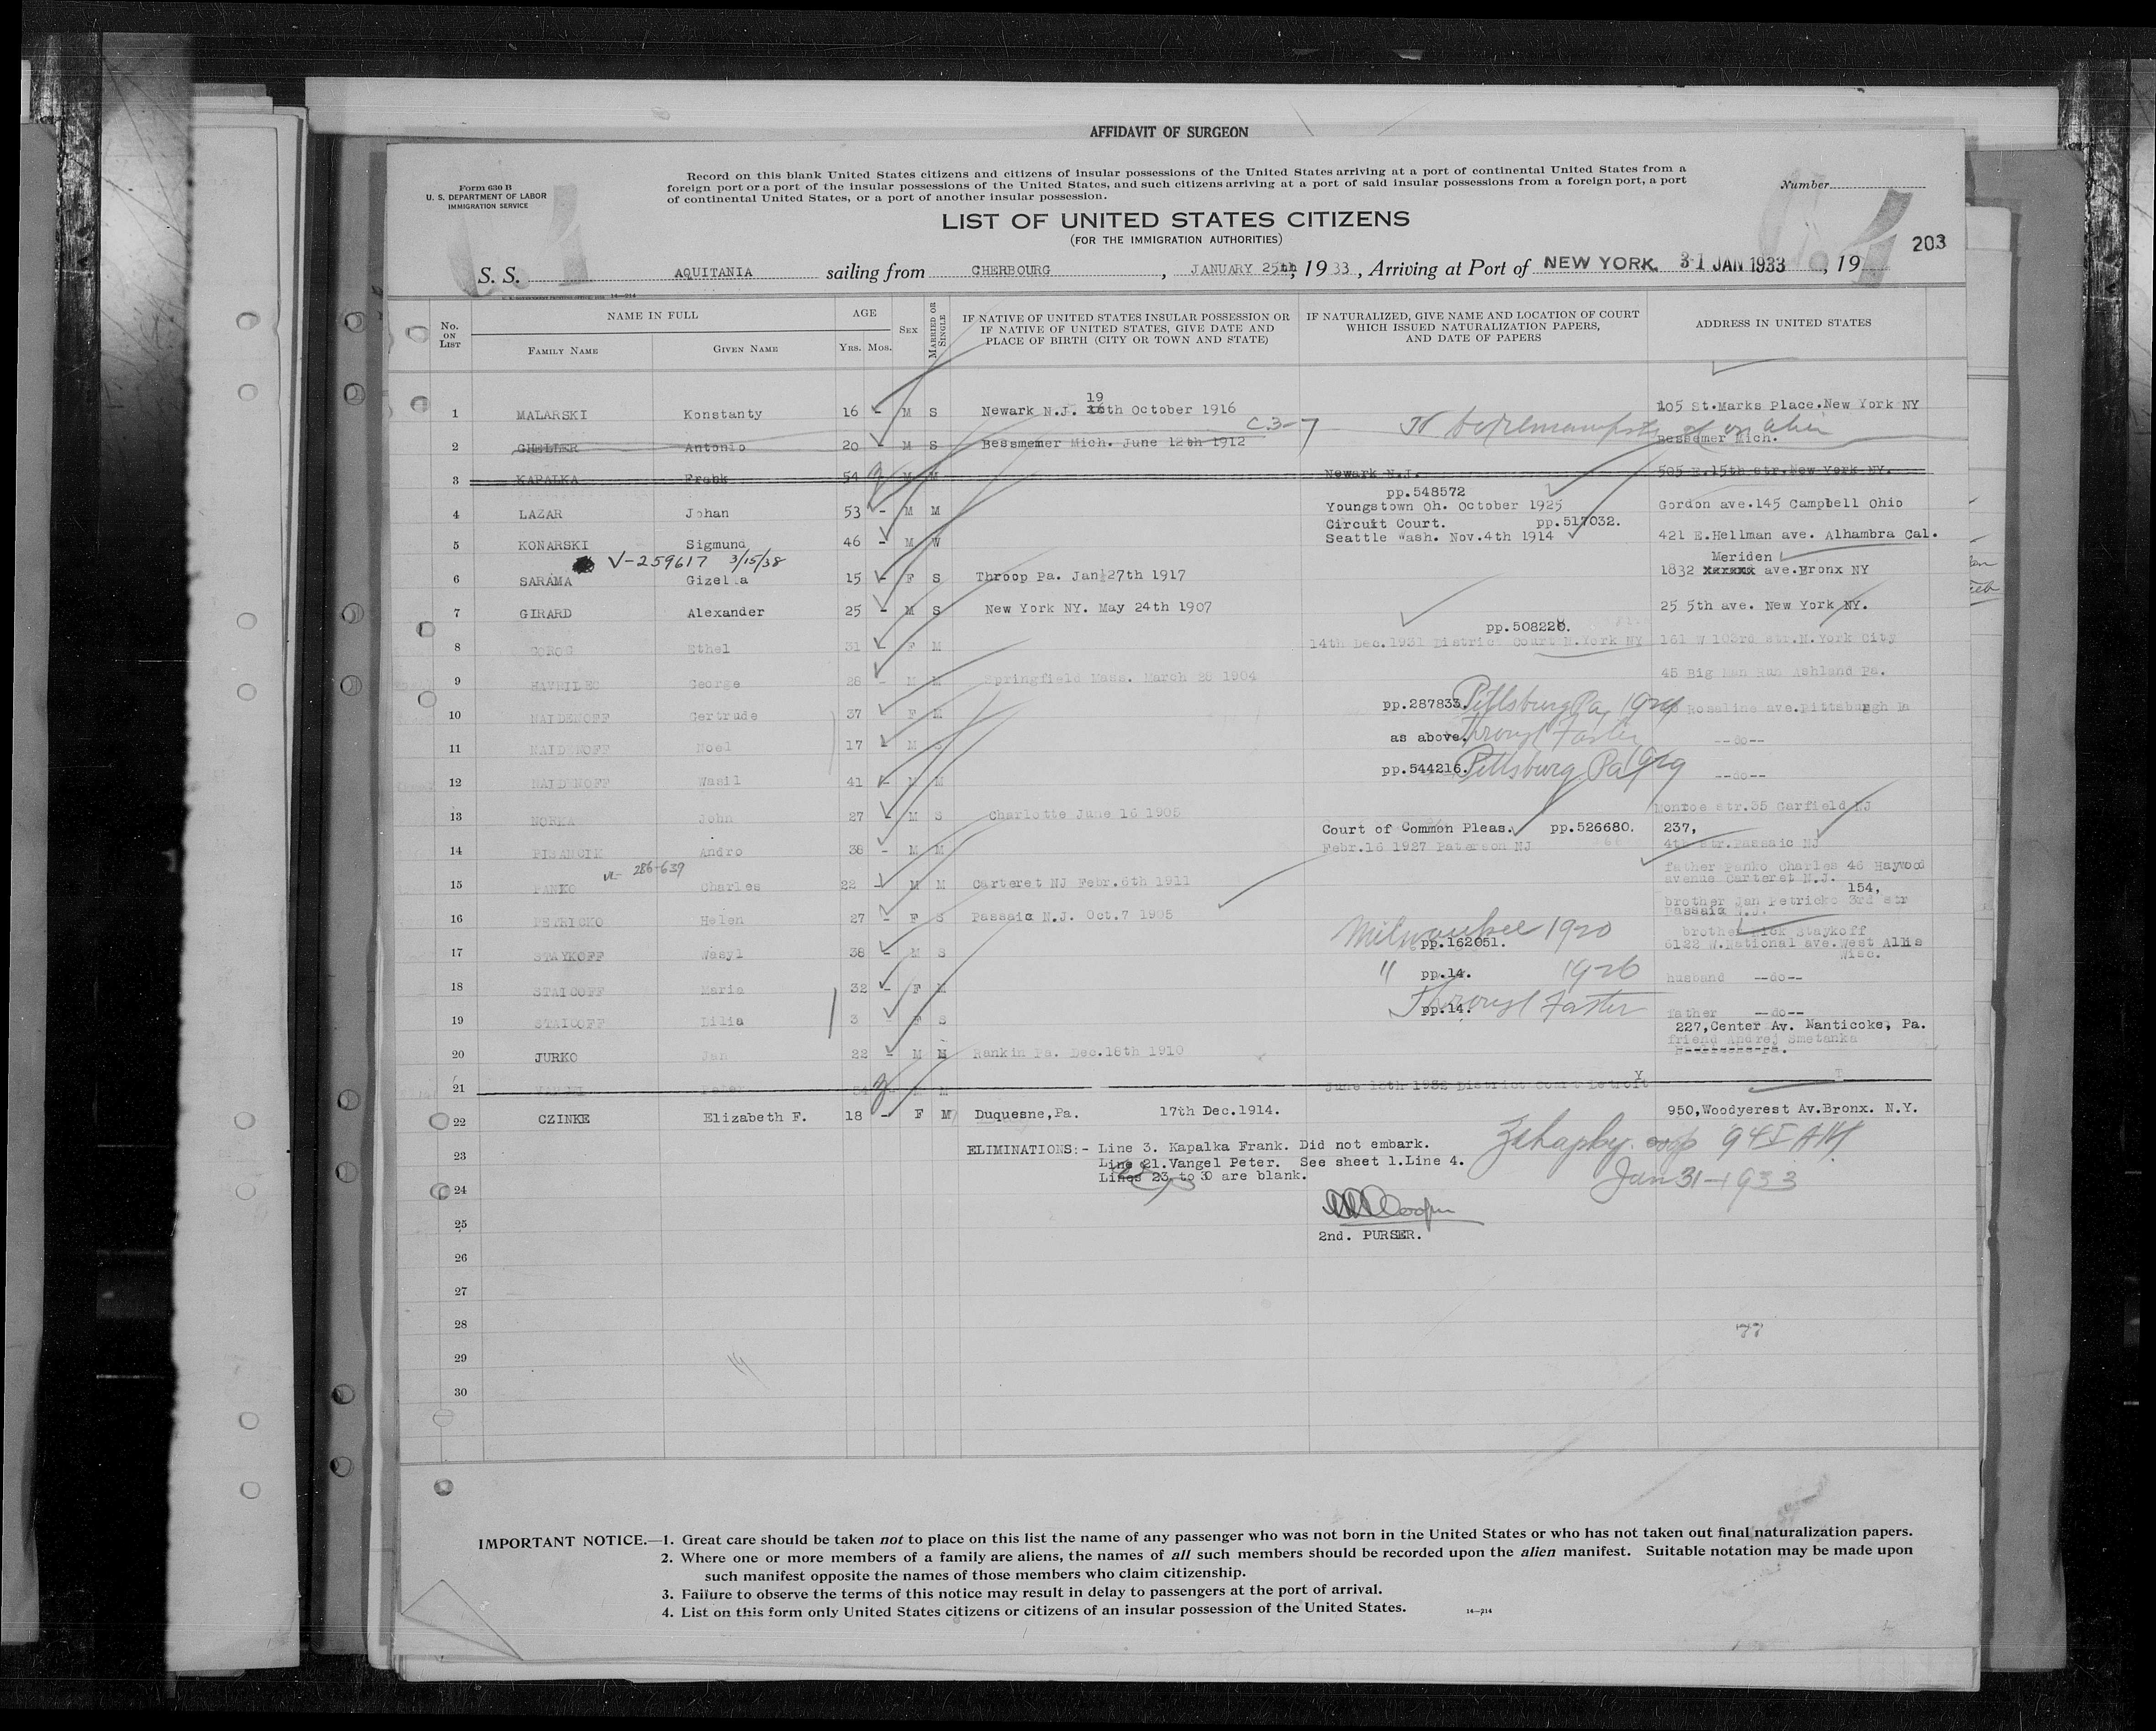 AFFIDAVIT OF SURGEON
Form 630 B
U. S. DEPARTMENT OF LABOR
IMMIGRATION SERVICE
Record on this blank United States citizens and citizens of insular possessions of the United States arriving at a port of continental United States from a
foreign port or a port of the insular possessions of the United States, and such citizens arriving at a port of said insular possessions from a foreign port, a port
of continental United States, or a port of another insular possession.
Number
LIST OF UNITED STATES CITIZENS
(FOR THE IMMIGRATION AUTHORITIES)
203
S. S. AQUITANIA sailing from CHERBOURG, JANUARY 25th, 1933, Arriving at Port of NEW YORK. 31 JAN 1933, 19
No. ON LIST
NAME IN FULL
FAMILY NAME GIVEN NAME
AGE
YRS. MOS.
SEX
MARRIED OR SINGLE
IF NATIVE OF UNITED STATES INSULAR POSSESSION OR
IF NATIVE OF UNITED STATES, GIVE DATE AND
PLACE OF BIRTH (CITY OR TOWN AND STATE)
IF NATURALIZED, GIVE NAME AND LOCATION OF COURT
WHICH ISSUED NATURALIZATION PAPERS,
AND DATE OF PAPERS
ADDRESS IN UNITED STATES
19
1 MALARSKI Konstanty 16 - M S Newark N.J. 16th October 1916 105 St.Marks Place.New York NY
C.3-7
2 GHELLER Antonio 20 - M S Bessmemer Mich. June 12th 1912 Bessemer Mich.
3 KAPALKA Frank 54 M M Newark N.J. 505 E.15th str.New York NY.
pp.548572
4 LAZAR Johan 53 - M M Youngstown Oh. October 1925 Gordon ave.145 Campbell Ohio
Circuit Court. pp.517032.
5 KONARSKI Sigmund 46 - M W Seattle Wash. Nov.4th 1914 421 E.Hellman ave. Alhambra Cal.
V-259617 3/15/38
Meriden
6 SARAMA Gizella 15 - F S Throop Pa. Jan 27th 1917 1832 xxxxxx ave.Bronx NY
7 GIRARD Alexander 25 - M S New York NY. May 24th 1907 25 5th ave. New York NY.
pp.508226.
8 GOROG Ethel 31 - F M 14th Dec.1931 District Court N.York NY 161 W 103rd str.N.York City
9 George 28 - M M Springfield Mass. March 28 1904 45 Big Man Run Ashland Pa.
10 NAIDENOFF Gertrude 37 F M pp.287833. Pittsburg Pa 1929 Rosaline ave.Pittsburgh Pa
11 NAIDENOFF Noel 17 - M S as above. Through Father --do--
12 NAIDENOFF Wasil 41 - M M pp.544216. Pittsburg Pa 1929 --do--
13 NORKA John 27 - M S Charlotte June 16 1905 Monroe str.35 Garfield NJ
Court of Common Pleas. pp.526680. 237,
14 Andro 38 - M M Febr.16 1927 Paterson NJ 4th str.Passaic NJ
286-639
15 PANKO Charles 22 - M M Carteret NJ Febr.6th 1911 father Panko Charles 46 Haywood
avenue Carteret N.J.
154,
16 PETRICKO Helen 27 - F S Passaic N.J. Oct.7 1905 brother Jan Petricko 3rd str
Passaic N.J.
Milwaukee 1920
17 STAYKOFF Wasyl 38 - M S pp.162051. brother Nick Staykoff
6122 W.National ave.West Allis
Wisc.
18 STAICOFF Maria 32 - F M " pp.14. 1926 husband --do--
19 STAICOFF Lilia 3 - F S pp.14. Through Father father --do--
227,Center Av. Nanticoke, Pa.
20 JURKO Jan 22 - M M Rankin Pa. Dec.18th 1910 friend Andrej Smetanka
21 Peter 54 M M June 1932 District Court Detroit
22 CZINKE Elizabeth F. 18 - F M Duquesne,Pa. 17th Dec.1914. 950,Woodyerest Av.Bronx. N.Y.
23 ELIMINATIONS:- Line 3. Kapalka Frank. Did not embark.
Line 21.Vangel Peter. See sheet 1.Line 4.
24 Lines 23 to 30 are blank.
Jan 31-1933
25
2nd. PURSER.
26
27
28
29
30
IMPORTANT NOTICE.—1. Great care should be taken not to place on this list the name of any passenger who was not born in the United States or who has not taken out final naturalization papers.
2. Where one or more members of a family are aliens, the names of all such members should be recorded upon the alien manifest. Suitable notation may be made upon
such manifest opposite the names of those members who claim citizenship.
3. Failure to observe the terms of this notice may result in delay to passengers at the port of arrival.
4. List on this form only United States citizens or citizens of an insular possession of the United States.
14—214